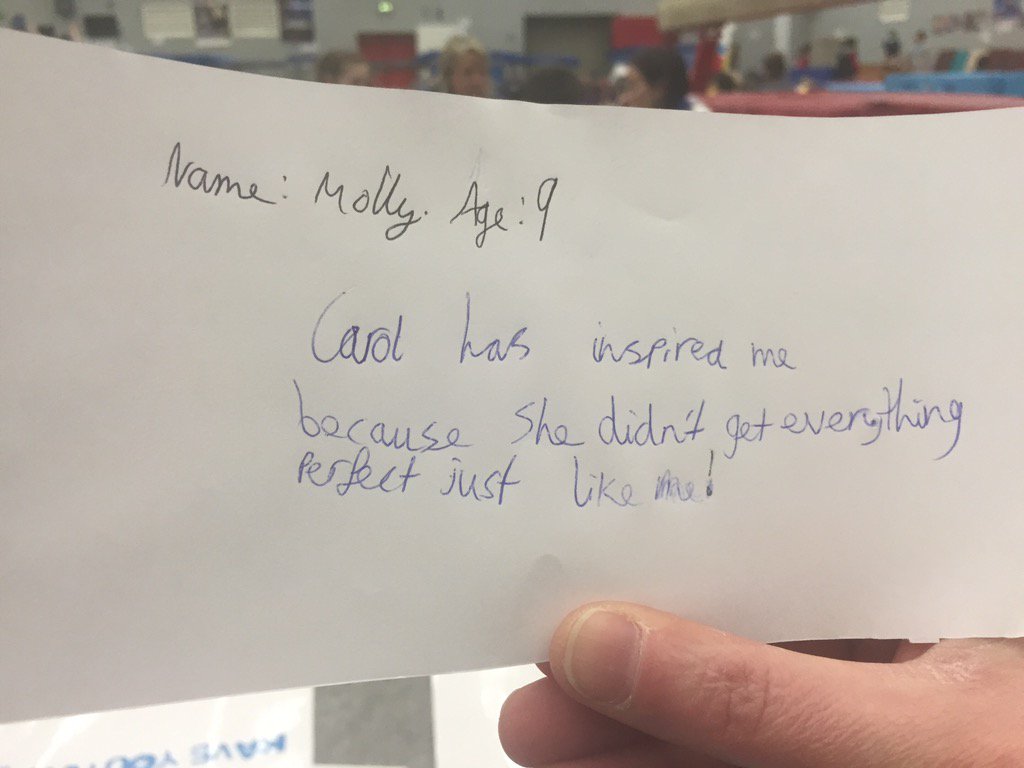 Name: Molly. Age: 9
Carol has inspired me
because she didn't get everything
perfect just like me!